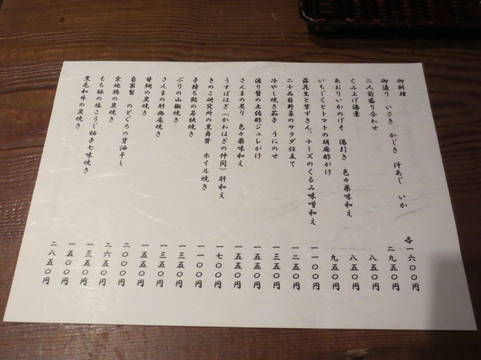 御料理
御造り いさき かじき 沖あじ いか 各一六〇〇円
二人前盛り合わせ 二九五〇円
くみ上げ湯葉 八五〇円
あおりいかのげそ 湯引き 色々薬味和え 八五〇円
いちじくとトマトの胡麻酢がけ 九五〇円
落花生と栗ずきん、チーズのくるみ味噌和え 一一〇〇円
二十品目野菜のサラダ仕立て 一二五〇円
冷やし焼き茄子 うにのせ 一三五〇円
渡り蟹の土佐酢ジュレがけ 一五五〇円
さんまの炙り 色々薬味和え 一五五〇円
うすばはぎ（かわはぎの仲間）肝和え 一七〇〇円
きのこ研究所の黒舞茸 ホイル焼き 一一〇〇円
子持ち鮎の若狭焼き 一三五〇円
ぶりの山椒焼き 一三五〇円
さんまの肝幽庵焼き 一五五〇円
甘鯛の炭焼き
自家製 のどぐろの醤油干し
京地鶏の炭焼き
もち豚の塩こうじ柚子七味焼き
黒毛和牛の炭焼き 二八五〇円